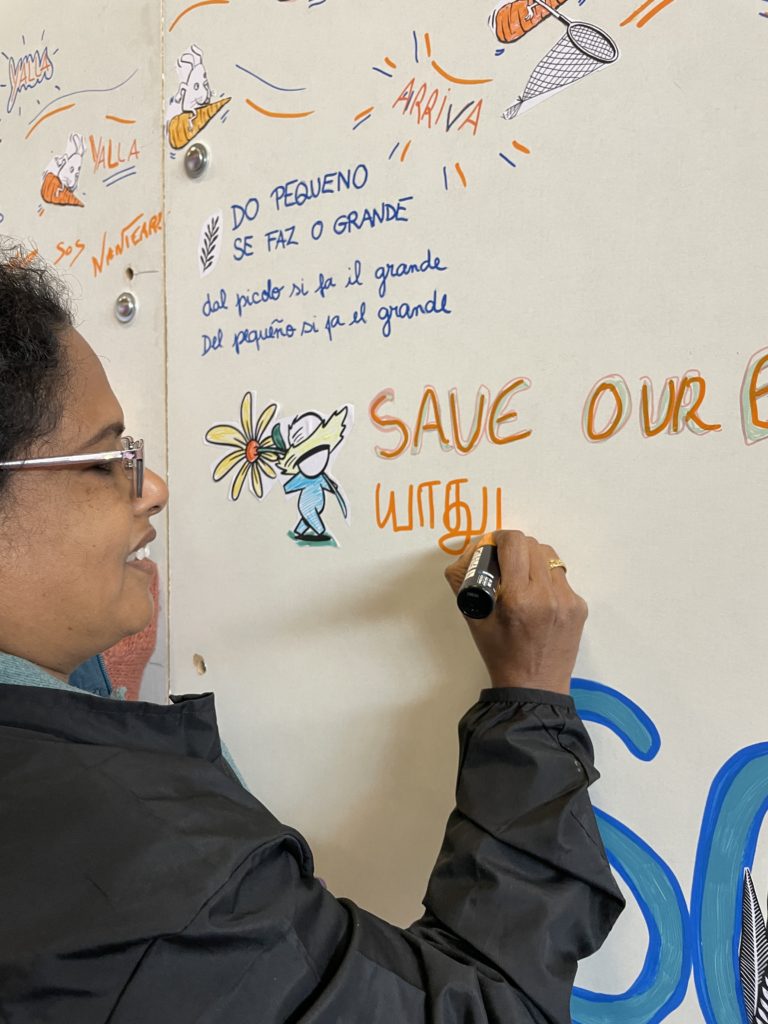 YALLA
ARRIVA
YALLA
SOS NANTERRE
DO PEQUENO
SE FAZ O GRANDE
dal picolo si fa il grande
Del pequeño si fa el grande
SAVE OUR
யாது